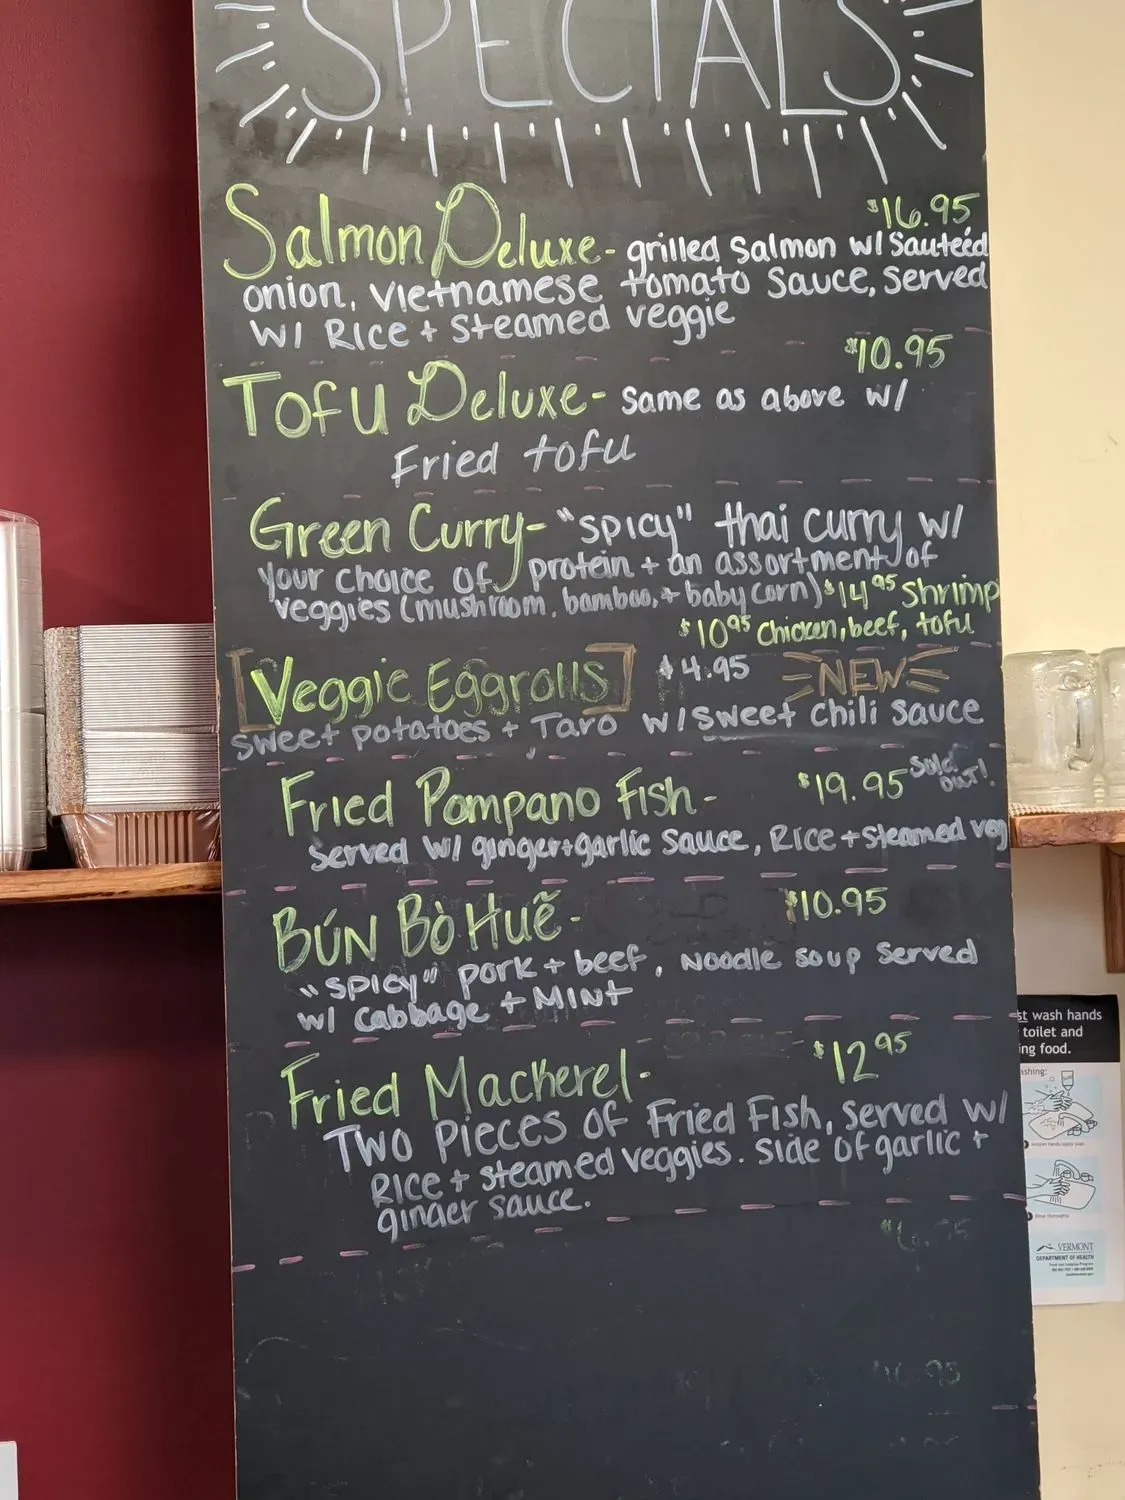 SPECIALS
$16.95
Salmon Deluxe- grilled Salmon w/ Sauteéd
onion, Vietnamese tomato Sauce, Served
w/ Rice + Steamed veggie
$10.95
Tofu Deluxe- Same as above w/
Fried tofu
Green Curry- "spicy" thai curry w/
your choice of protein + an assortment of
veggies (mushroom, bamboo, + baby corn) $14.95 Shrimp
$10.95 Chicken, beef, tofu
[Veggie Eggrolls] $4.95 NEW
sweet potatoes + Taro w/ sweet chili sauce
Fried Pompano Fish- $19.95 Sold out!
Served w/ ginger+garlic Sauce, Rice + steamed veg
BÚN BÒ HUẾ- $10.95
"spicy" pork + beef, Noodle soup served
w/ Cabbage + MINT
Fried Mackerel- $12.95
TWO PIECES OF Fried Fish, served w/
Rice + steamed veggies. Side of garlic +
ginger sauce.
st wash hands
toilet and
ing food.
ashing:
VERMONT
DEPARTMENT OF HEALTH